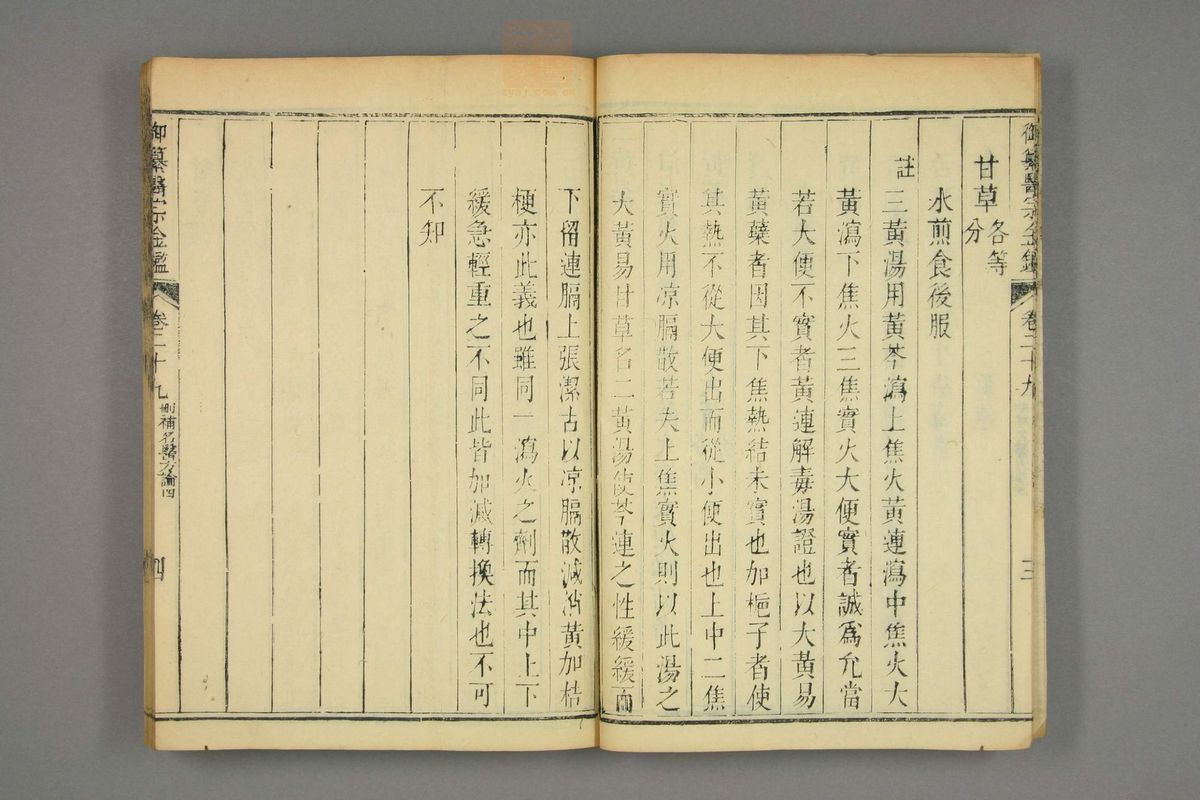 御纂醫宗金鑑 卷二十九 三
甘草各等分
水煎食後服
註三黃湯用黃芩瀉上焦火黃連瀉中焦火大
黃瀉下焦火三焦實火大便實者誠爲允當
若大便不實者黃連解毒湯證也以大黃易
黃蘗者因其下焦熱結未實也加梔子者使
其熱不從大便出而從小便出也上中二焦
實火用凉膈散若夫上焦實火則以此湯之
大黃易甘草名二黃湯使芩連之性緩緩而
下留連膈上張潔古以凉膈散減消黃加桔
梗亦此義也雖同一瀉火之劑而其中上下
緩急輕重之不同此皆加減轉換法也不可
不知
御纂醫宗金鑑 卷二十九 刪補名醫方論四 四